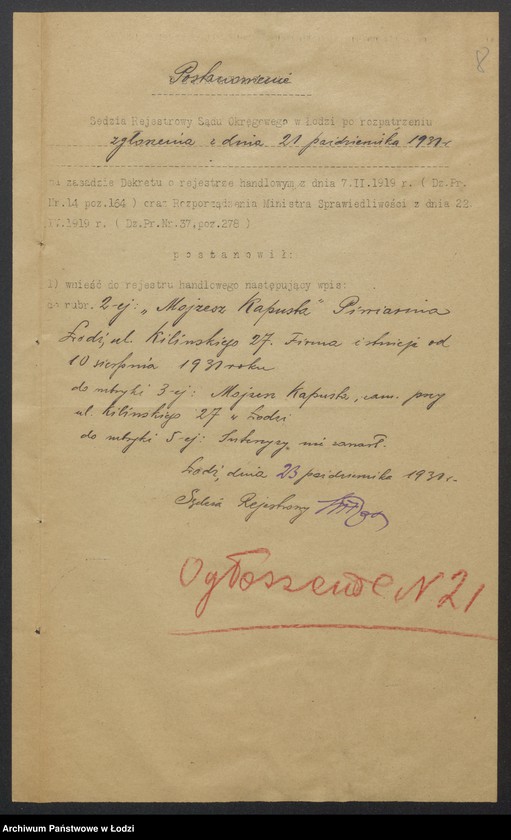 8
Postanowienie
Sędzia Rejestrowy Sądu Okręgowego w Łodzi po rozpatrzeniu
zgłoszenia z dnia 21 października 1931 r.
na zasadzie Dekretu o rejestrze handlowym z dnia 7.II.1919 r. ( Dz.Pr.
Nr.14 poz.164 ) oraz Rozporządzenia Ministra Sprawiedliwości z dnia 22.
IV.1919 r. ( Dz.Pr.Nr.37,poz.278 )
p o s t a n o w i ł :
1) wnieść do rejestru handlowego następujący wpis:
do rubr. 2-ej: „Mojżesz Kapusta" Piwiarnia
Łódź, ul. Kilińskiego 27. Firma istnieje od
10 sierpnia 1931 roku
do rubryki 3-ej: Mojżesz Kapusta, zam. przy
ul. Kilińskiego 27 w Łodzi
do rubryki 5-ej: Intercyzy nie zawarł.
Łódź, dnia 23 października 1931 r.
Sędzia Rejestrowy
Ogłoszenie N 21
Archiwum Państwowe w Łodzi